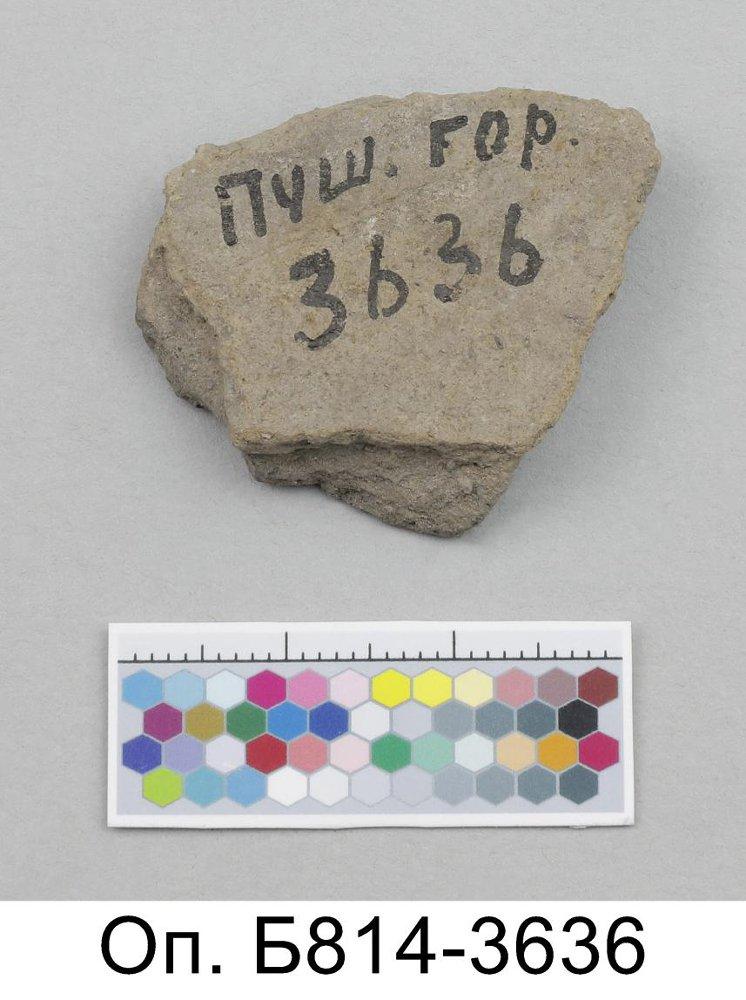 Пуш. гор.
3636
Оп. Б814-3636